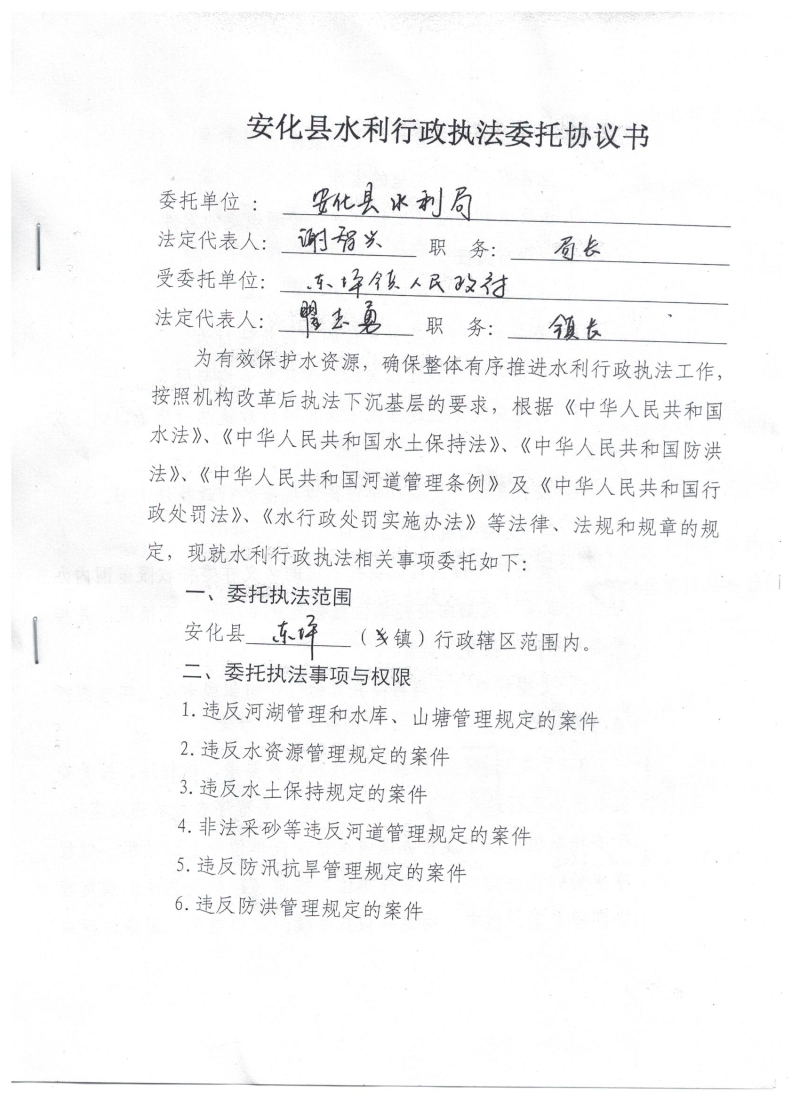 安化县水利行政执法委托协议书
委托单位：安化县水利局
法定代表人：谢智兴 职 务：局长
受委托单位：东坪镇人民政府
法定代表人：瞿志勇 职 务：镇长
为有效保护水资源，确保整体有序推进水利行政执法工作，
按照机构改革后执法下沉基层的要求，根据《中华人民共和国
水法》、《中华人民共和国水土保持法》、《中华人民共和国防洪
法》、《中华人民共和国河道管理条例》及《中华人民共和国行
政处罚法》、《水行政处罚实施办法》等法律、法规和规章的规
定，现就水利行政执法相关事项委托如下：
一、委托执法范围
安化县东坪（乡镇）行政辖区范围内。
二、委托执法事项与权限
1.违反河湖管理和水库、山塘管理规定的案件
2.违反水资源管理规定的案件
3.违反水土保持规定的案件
4.非法采砂等违反河道管理规定的案件
5.违反防汛抗旱管理规定的案件
6.违反防洪管理规定的案件